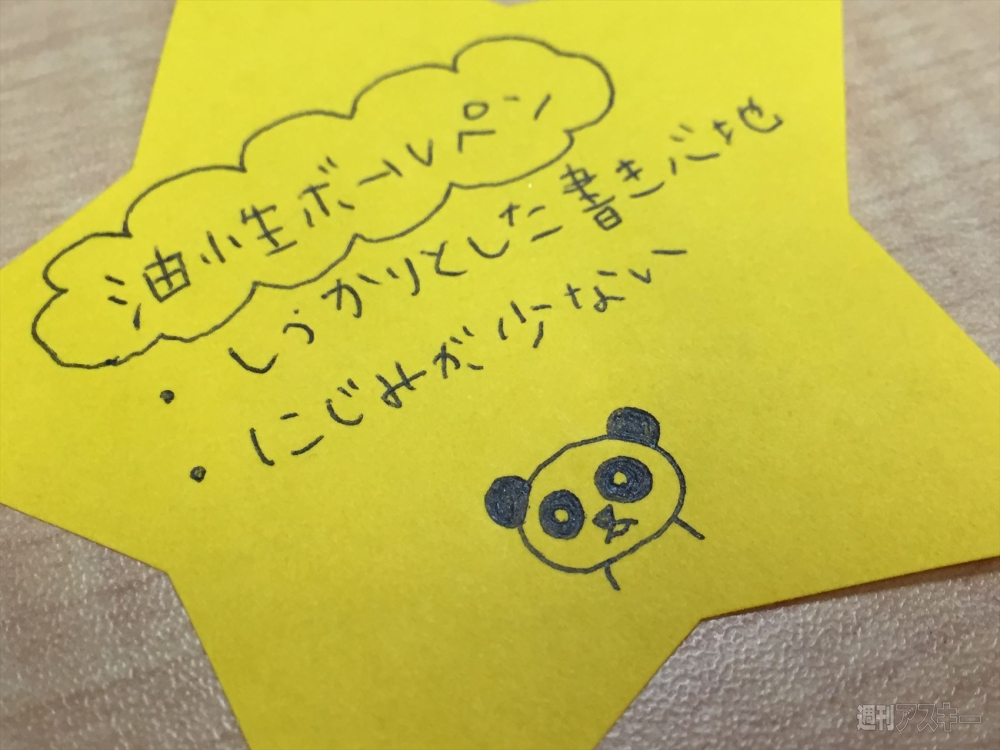 油性ボールペン
・しっかりとした書き心地
・にじみが少ない
週刊アスキー